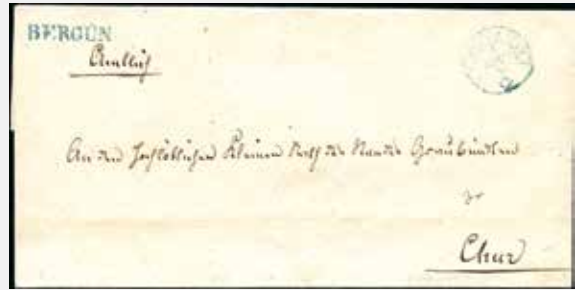 BERGÜN
Amtlich
An den Hochlöblichen Kleinen Rath des Kantons Graubünden
zu
Chur